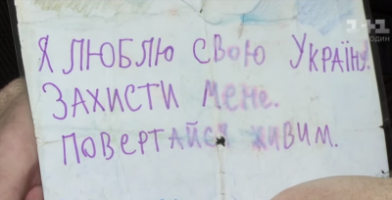 1+1
Я ЛЮБЛЮ СВОЮ УКРАЇНУ.
ЗАХИСТИ МЕНЕ.
ПОВЕРТАЙСЯ ЖИВИМ.